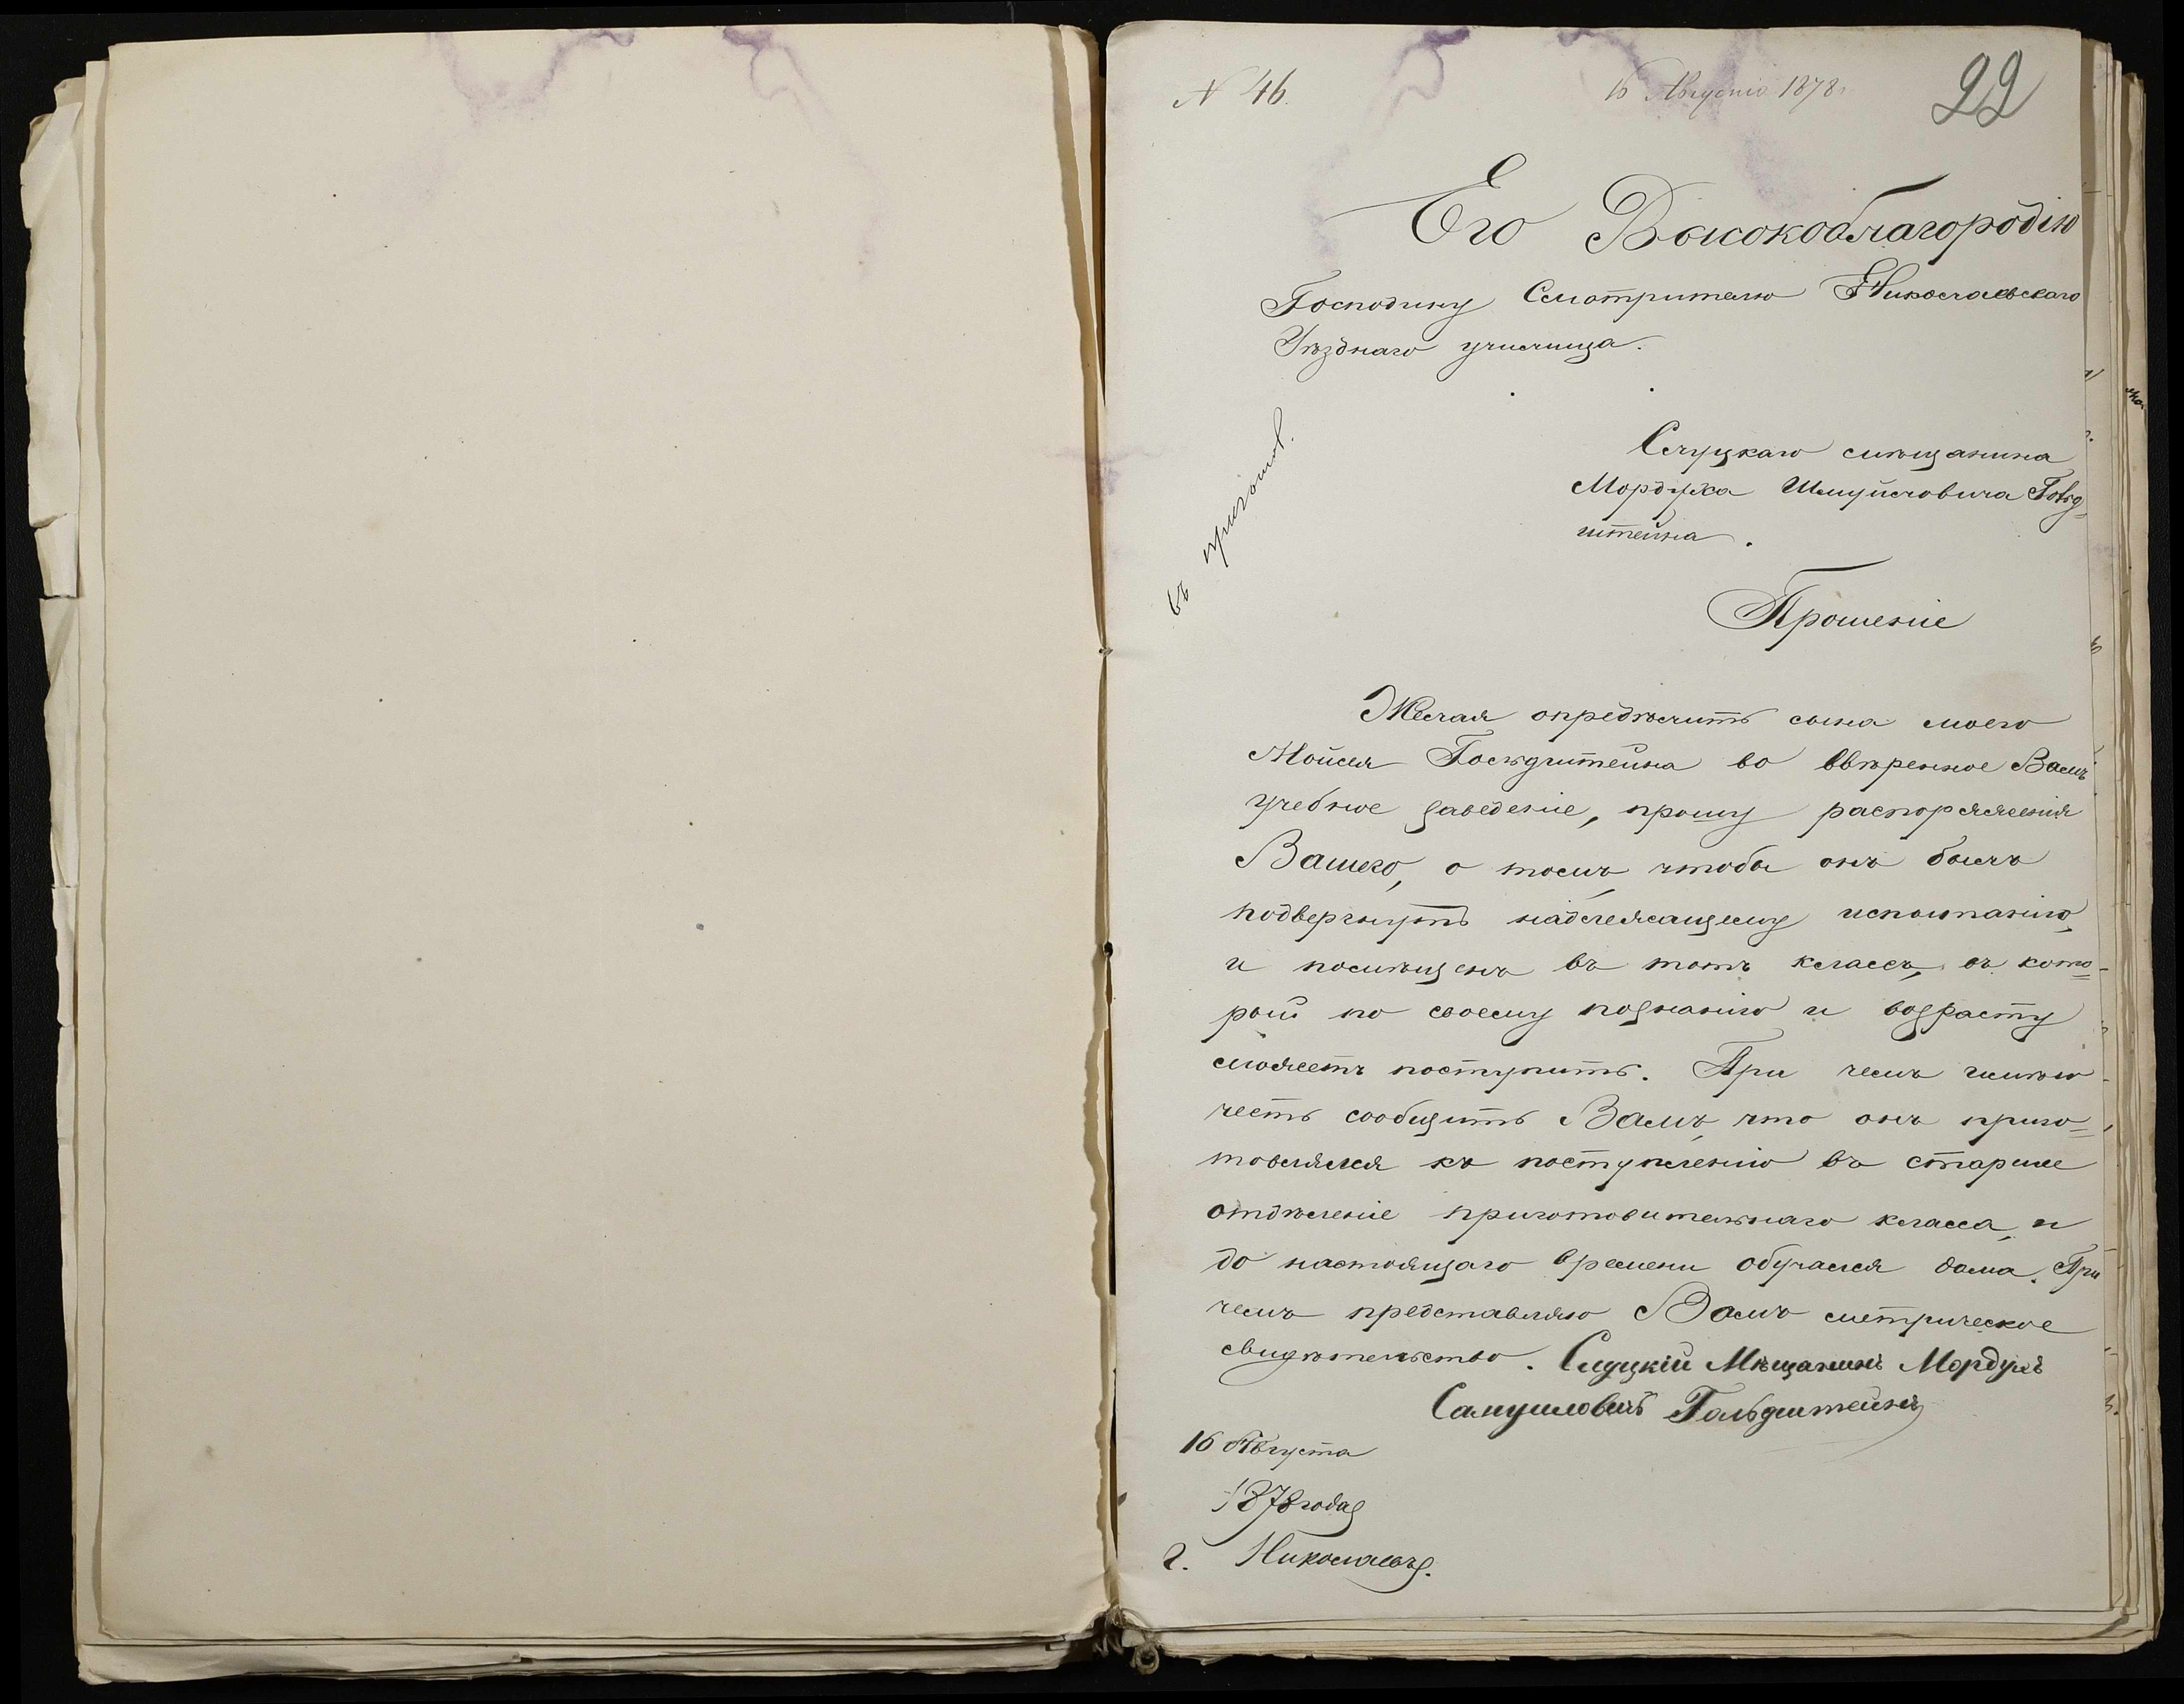 N 46.
16 Августа 1878 г.
22
Его Высокоблагородію
Господину Смотрителю Николаевскаго
Уѣзднаго училища.
Слуцкаго мѣщанина
Мордуха Шмуйловича Гольд-
штейна.
въ приготов.
Прошеніе
Желая опредѣлить сына моего
Мойсея Гольдштейна во ввѣренное Вамъ
учебное заведеніе, прошу распоряженія
Вашего, о томъ, чтобы онъ былъ
подвергнутъ надлежащему испытанію,
и помѣщенъ въ тотъ классъ, въ кото=
рый по своему познанію и возрасту
можетъ поступить. При чемъ имѣю
честь сообщить Вамъ, что онъ приго=
товлялся къ поступленію въ старшее
отдѣленіе приготовительнаго класса, и
до настоящаго времени обучался дома. При
чемъ представляю Вамъ метрическое
свидѣтельство. Слуцкій Мѣщанинъ Мордухъ
Самуиловичъ Гольдштейнъ
16 Августа
1878 года
г. Николаевъ.